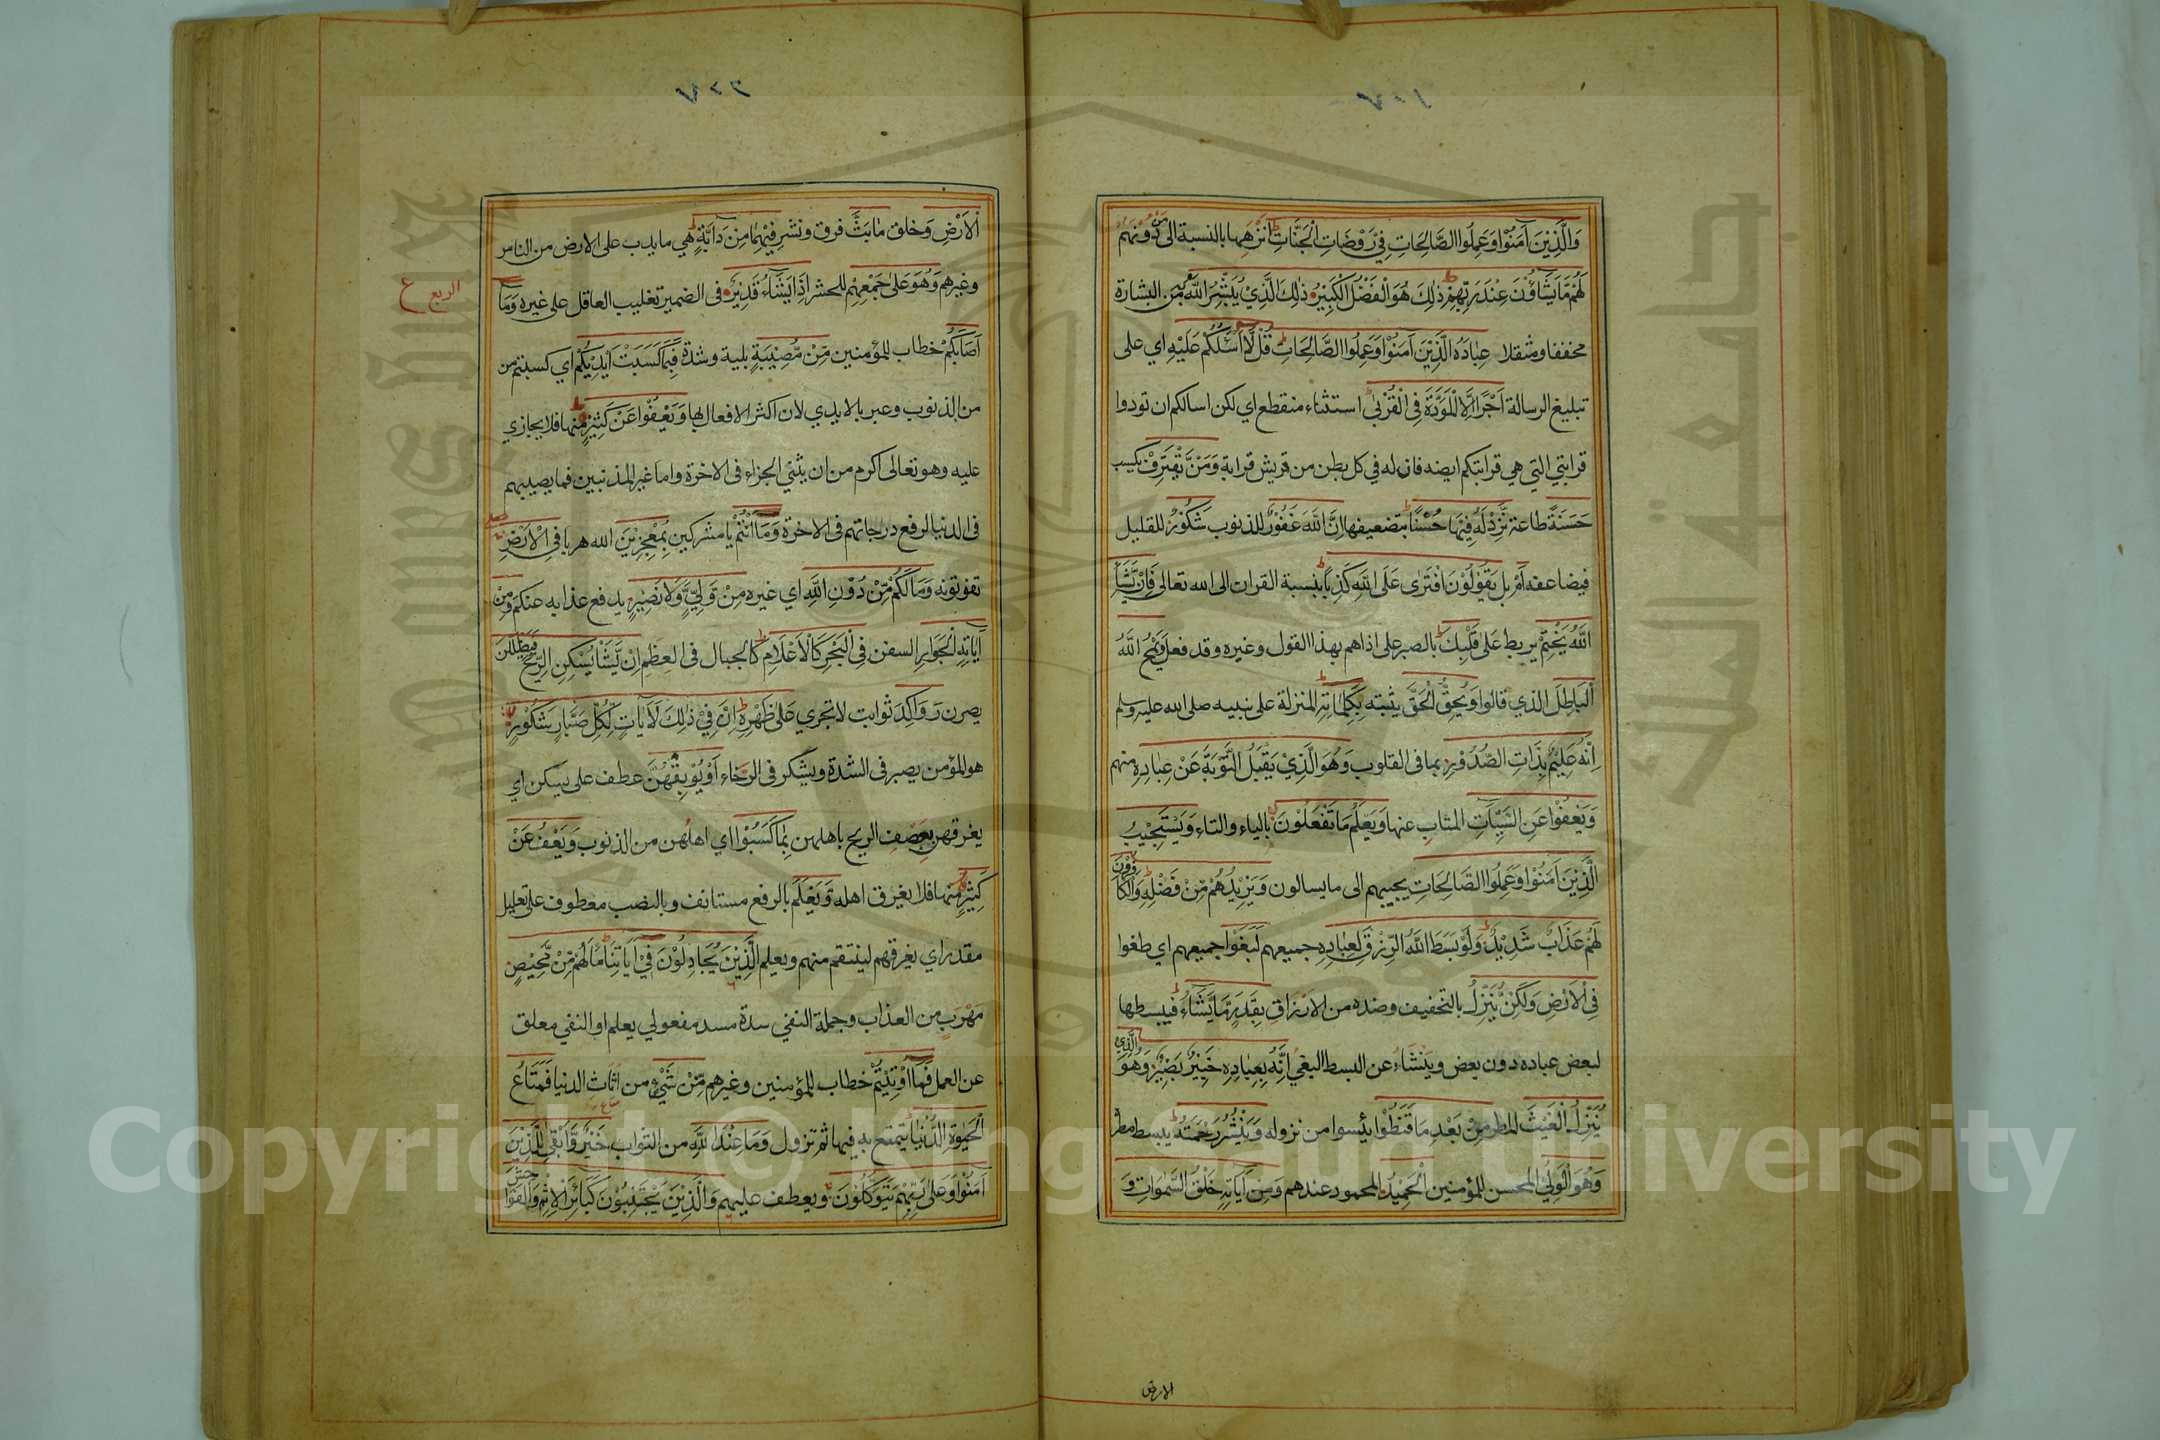 وَالَّذِيْنَ آمَنُوْا وَعَمِلُوا الصَّالِحَاتِ فِيْ رَوْضَاتِ الْجَنَّاتِ انزهها بالنسبة الى من دونهم
لَهُمْ مَّا يَشَاؤُنَ عِنْدَ رَبِّهِمْ ذٰلِكَ هُوَ الْفَضْلُ الْكَبِيْرُ ذٰلِكَ الَّذِيْ يُبَشِّرُ اللّٰهُ من البشارة
مخففا ومثقلا عِبَادَهُ الَّذِيْنَ آمَنُوْا وَعَمِلُوا الصَّالِحَاتِ قُلْ لَّا اَسْئَلُكُمْ عَلَيْهِ اي على
تبليغ الرسالة اَجْرًا اِلَّا الْمَوَدَّةَ فِى الْقُرْبٰى استثناء منقطع اي لكن اسالكم ان تودوا
قرابتي التي هي قرابتكم ايضه فان له في كل بطن من قريش قرابة وَمَنْ يَّقْتَرِفْ يكسب
حَسَنَةً طاعة نَّزِدْ لَهُ فِيْهَا حُسْنًا بتضعيفها اِنَّ اللّٰهَ غَفُوْرٌ للذنوب شَكُوْرٌ للقليل
فيضاعفه اَمْ بل يَقُوْلُوْنَ افْتَرٰى عَلَى اللّٰهِ كَذِبًا بنسبة القران الى الله تعالى فَاِنْ يَّشَاِ
اللّٰهُ يَخْتِمْ يربط عَلٰى قَلْبِكَ بالصبر على اذاهم بهذا القول وغيره وقد فعل وَيَمْحُ اللّٰهُ
الْبَاطِلَ الذي قالوا وَيُحِقُّ الْحَقَّ يثبته بِكَلِمَاتِهِ المنزلة على نبيه صلى الله عليه وسلم
اِنَّهُ عَلِيْمٌ بِذَاتِ الصُّدُوْرِ بما فى القلوب وَهُوَ الَّذِيْ يَقْبَلُ التَّوْبَةَ عَنْ عِبَادِهِ منهم
وَيَعْفُوْا عَنِ السَّيِّاٰتِ المتاب عنها وَيَعْلَمُ مَا تَفْعَلُوْنَ بالياء والتاء وَيَسْتَجِيْبُ
الَّذِيْنَ آمَنُوْا وَعَمِلُوا الصَّالِحَاتِ يجيبهم الى ما يسالون وَيَزِيْدُهُمْ مِّنْ فَضْلِهِ وَالْكَافِرُوْنَ
لَهُمْ عَذَابٌ شَدِيْدٌ وَلَوْ بَسَطَ اللّٰهُ الرِّزْقَ لِعِبَادِهِ جميعهم لَبَغَوْا جميعهم اي طغوا
فِى الْاَرْضِ وَلٰكِنْ يُّنَزِّلُ بالتخفيف وضده من الارزاق بِقَدَرٍ مَّا يَشَاءُ فيبسطها
لبعض عباده دون بعض وينشاء عن البسط البغي اِنَّهُ بِعِبَادِهِ خَبِيْرٌ بَصِيْرٌ وَهُوَ الَّذِيْ
يُنَزِّلُ الْغَيْثَ المطر مِنْ بَعْدِ مَا قَنَطُوْا يئسوا من نزوله وَيَنْشُرُ رَحْمَتَهُ يبسط مطر
وَهُوَ الْوَلِيُّ المحسن للمؤمنين الْحَمِيْدُ المحمود عندهم وَمِنْ آيَاتِهِ خَلْقُ السَّمٰوَاتِ وَ
الارض
الْاَرْضِ وَخلق مَا بَثَّ فرق ونشر فِيْهِمَا مِنْ دَابَّةٍ هي ما يدب على الارض من الناس
وغيرهم وَهُوَ عَلٰى جَمْعِهِمْ للحشر اِذَا يَشَاءُ قَدِيْرٌ فى الضمير تغليب العاقل على غيره وَمَا
الربع ع
اَصَابَكُمْ خطاب للمؤمنين مِّنْ مُّصِيْبَةٍ بلية وشدة فَبِمَا كَسَبَتْ اَيْدِيْكُمْ اي كسبتم من
من الذنوب وعبر بالايدي لان اكثر الافعال بها وَيَعْفُوْا عَنْ كَثِيْرٍ منها فلا يجازي
عليه وهو تعالى اكرم من ان يثني الجزاء فى الاخرة واما غير المذنبين فما يصيبهم
فى الدنيا لرفع درجاتهم فى الاخرة وَمَا اَنْتُمْ يا مشركين بِمُعْجِزِيْنَ الله هربا فِى الْاَرْضِ
تفوتونه وَمَا لَكُمْ مِّنْ دُوْنِ اللّٰهِ اي غيره مِنْ وَّلِيٍّ وَّلَا نَصِيْرٍ يدفع عذابه عنكم وَمِنْ
آيَاتِهِ الْجَوَارِ السفن فِى الْبَحْرِ كَالْاَعْلَامِ كالجبال فى العظم اِنْ يَّشَأْ يُسْكِنِ الرِّيْحَ فَيَظْلَلْنَ
يصرن رَوَاكِدَ ثوابت لا تجري عَلٰى ظَهْرِهِ اِنَّ فِيْ ذٰلِكَ لَآيَاتٍ لِّكُلِّ صَبَّارٍ شَكُوْرٍ
هو المؤمن يصبر فى الشدة ويشكر فى الرخاء اَوْ يُوْبِقْهُنَّ عطف على يسكن اي
يغرقهن بعصف الريح باهلهن بِمَا كَسَبُوْا اي اهلهن من الذنوب وَيَعْفُ عَنْ
كَثِيْرٍ منها فلا يغرق اهله وَيَعْلَمَ بالرفع مستانف وبالنصب معطوف على تعليل
مقدر اي يغرقهم لينتقم منهم ويعلم الَّذِيْنَ يُجَادِلُوْنَ فِيْ آيَاتِنَا مَا لَهُمْ مِّنْ مَّحِيْصٍ
مهرب من العذاب وجملة النفي سدة مسد مفعولي يعلم او النفي معلق
عن العمل فَمَا اُوْتِيْتُمْ خطاب للمؤمنين وغيرهم مِّنْ شَيْءٍ من اثاث الدنيا فَمَتَاعُ
الْحَيٰوةِ الدُّنْيَا يتمتع به فيها ثم تزول وَمَا عِنْدَ اللّٰهِ من الثواب خَيْرٌ وَّاَبْقٰى لِلَّذِيْنَ
آمَنُوْا وَعَلٰى رَبِّهِمْ يَتَوَكَّلُوْنَ ويعطف عليهم وَالَّذِيْنَ يَجْتَنِبُوْنَ كَبَائِرَ الْاِثْمِ وَالْفَوَاحِشَ
Copyright © King Saud University